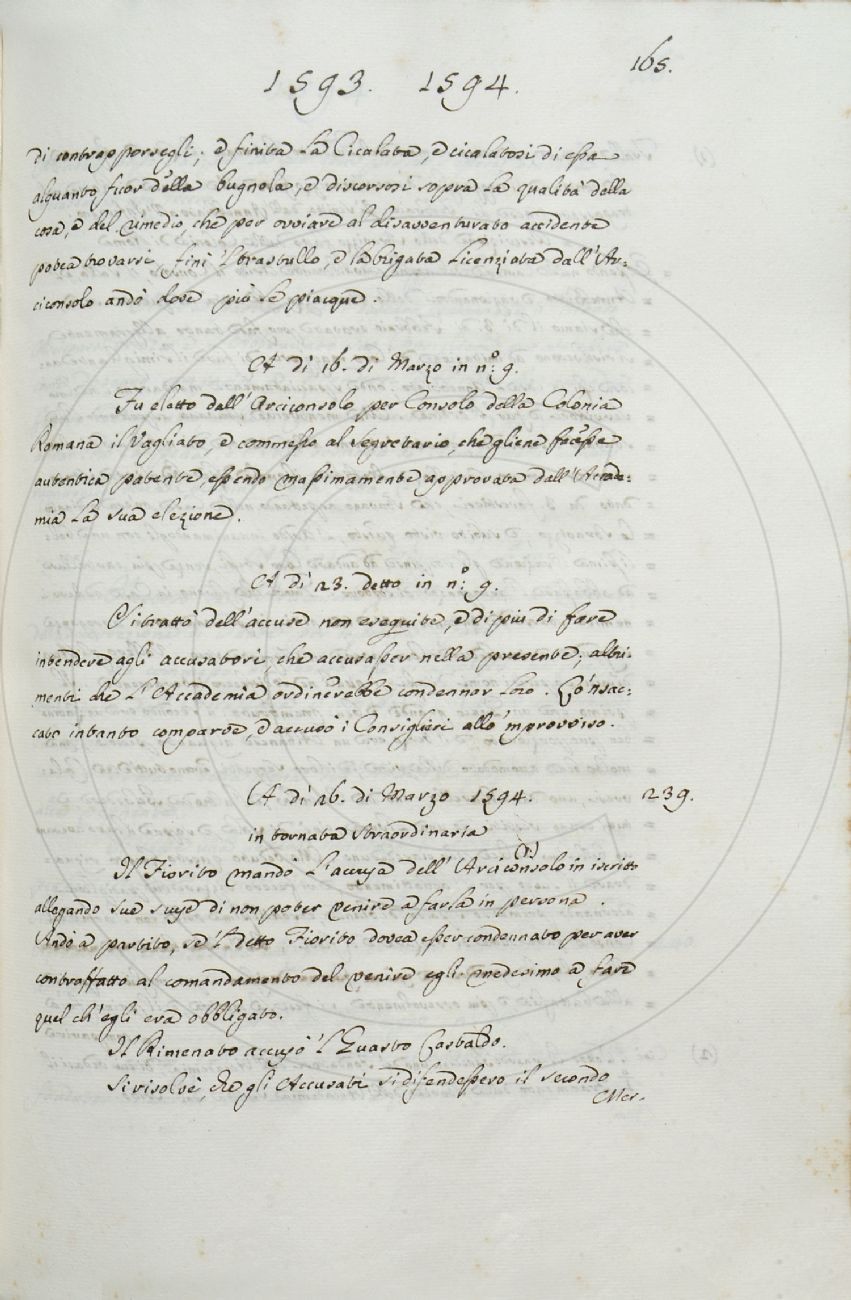 165.
1593. 1594.
di contrapporsegli; e finita la Cicalata, e cicalatosi di essa
alquanto fuor della bugnola, e discorsosi sopra la qualità della
cosa, e del rimedio, che per ovviare al disavventurato accidente
potea trovarsi, finì 'l trastullo, e la brigata licenziata dall'Ar-
ciconsolo andò dove più le piacque.
A dì 16. di Marzo in n.º 9.
Fu eletto dall'Arciconsolo per Consolo della Colonia
Romana il Vagliato, e commesso al Segretario, che gliene facesse
autentica patente, essendo massimamente approvata dall'Accade-
mia la sua elezione.
A dì 23. detto in n.º 9.
Si trattò dell'accuse non eseguite, e di più di fare
intendere agli accusatori, che accusasser nella presente; altri-
menti che l'Accademia ordinerebbe condennar loro. Lo 'nsac-
cato intanto comparve, ed accusò i Consiglieri allo 'mprovviso.
A dì 26. di Marzo 1594. 239.
in tornata straordinaria
Il Fiorito mandò l'accusa dell'Arciconsolo (1) in iscritto
allegando sue scuse di non poter venire a farla in persona.
Andò a partito, se 'l detto Fiorito dovea esser condennato per aver
contraffatto al comandamento del venire egli medesimo a fare
quel ch'egli era obbligato.
Il Rimenato accusò 'l Quarto Castaldo.
Si risolvè, che gli Accusati si difendessero il secondo
Mer-